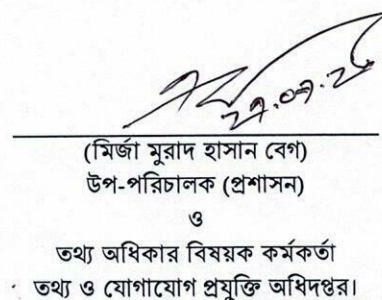 (মির্জা মুরাদ হাসান বেগ)
উপ-পরিচালক (প্রশাসন)
ও
তথ্য অধিকার বিষয়ক কর্মকর্তা
তথ্য ও যোগাযোগ প্রযুক্তি অধিদপ্তর।